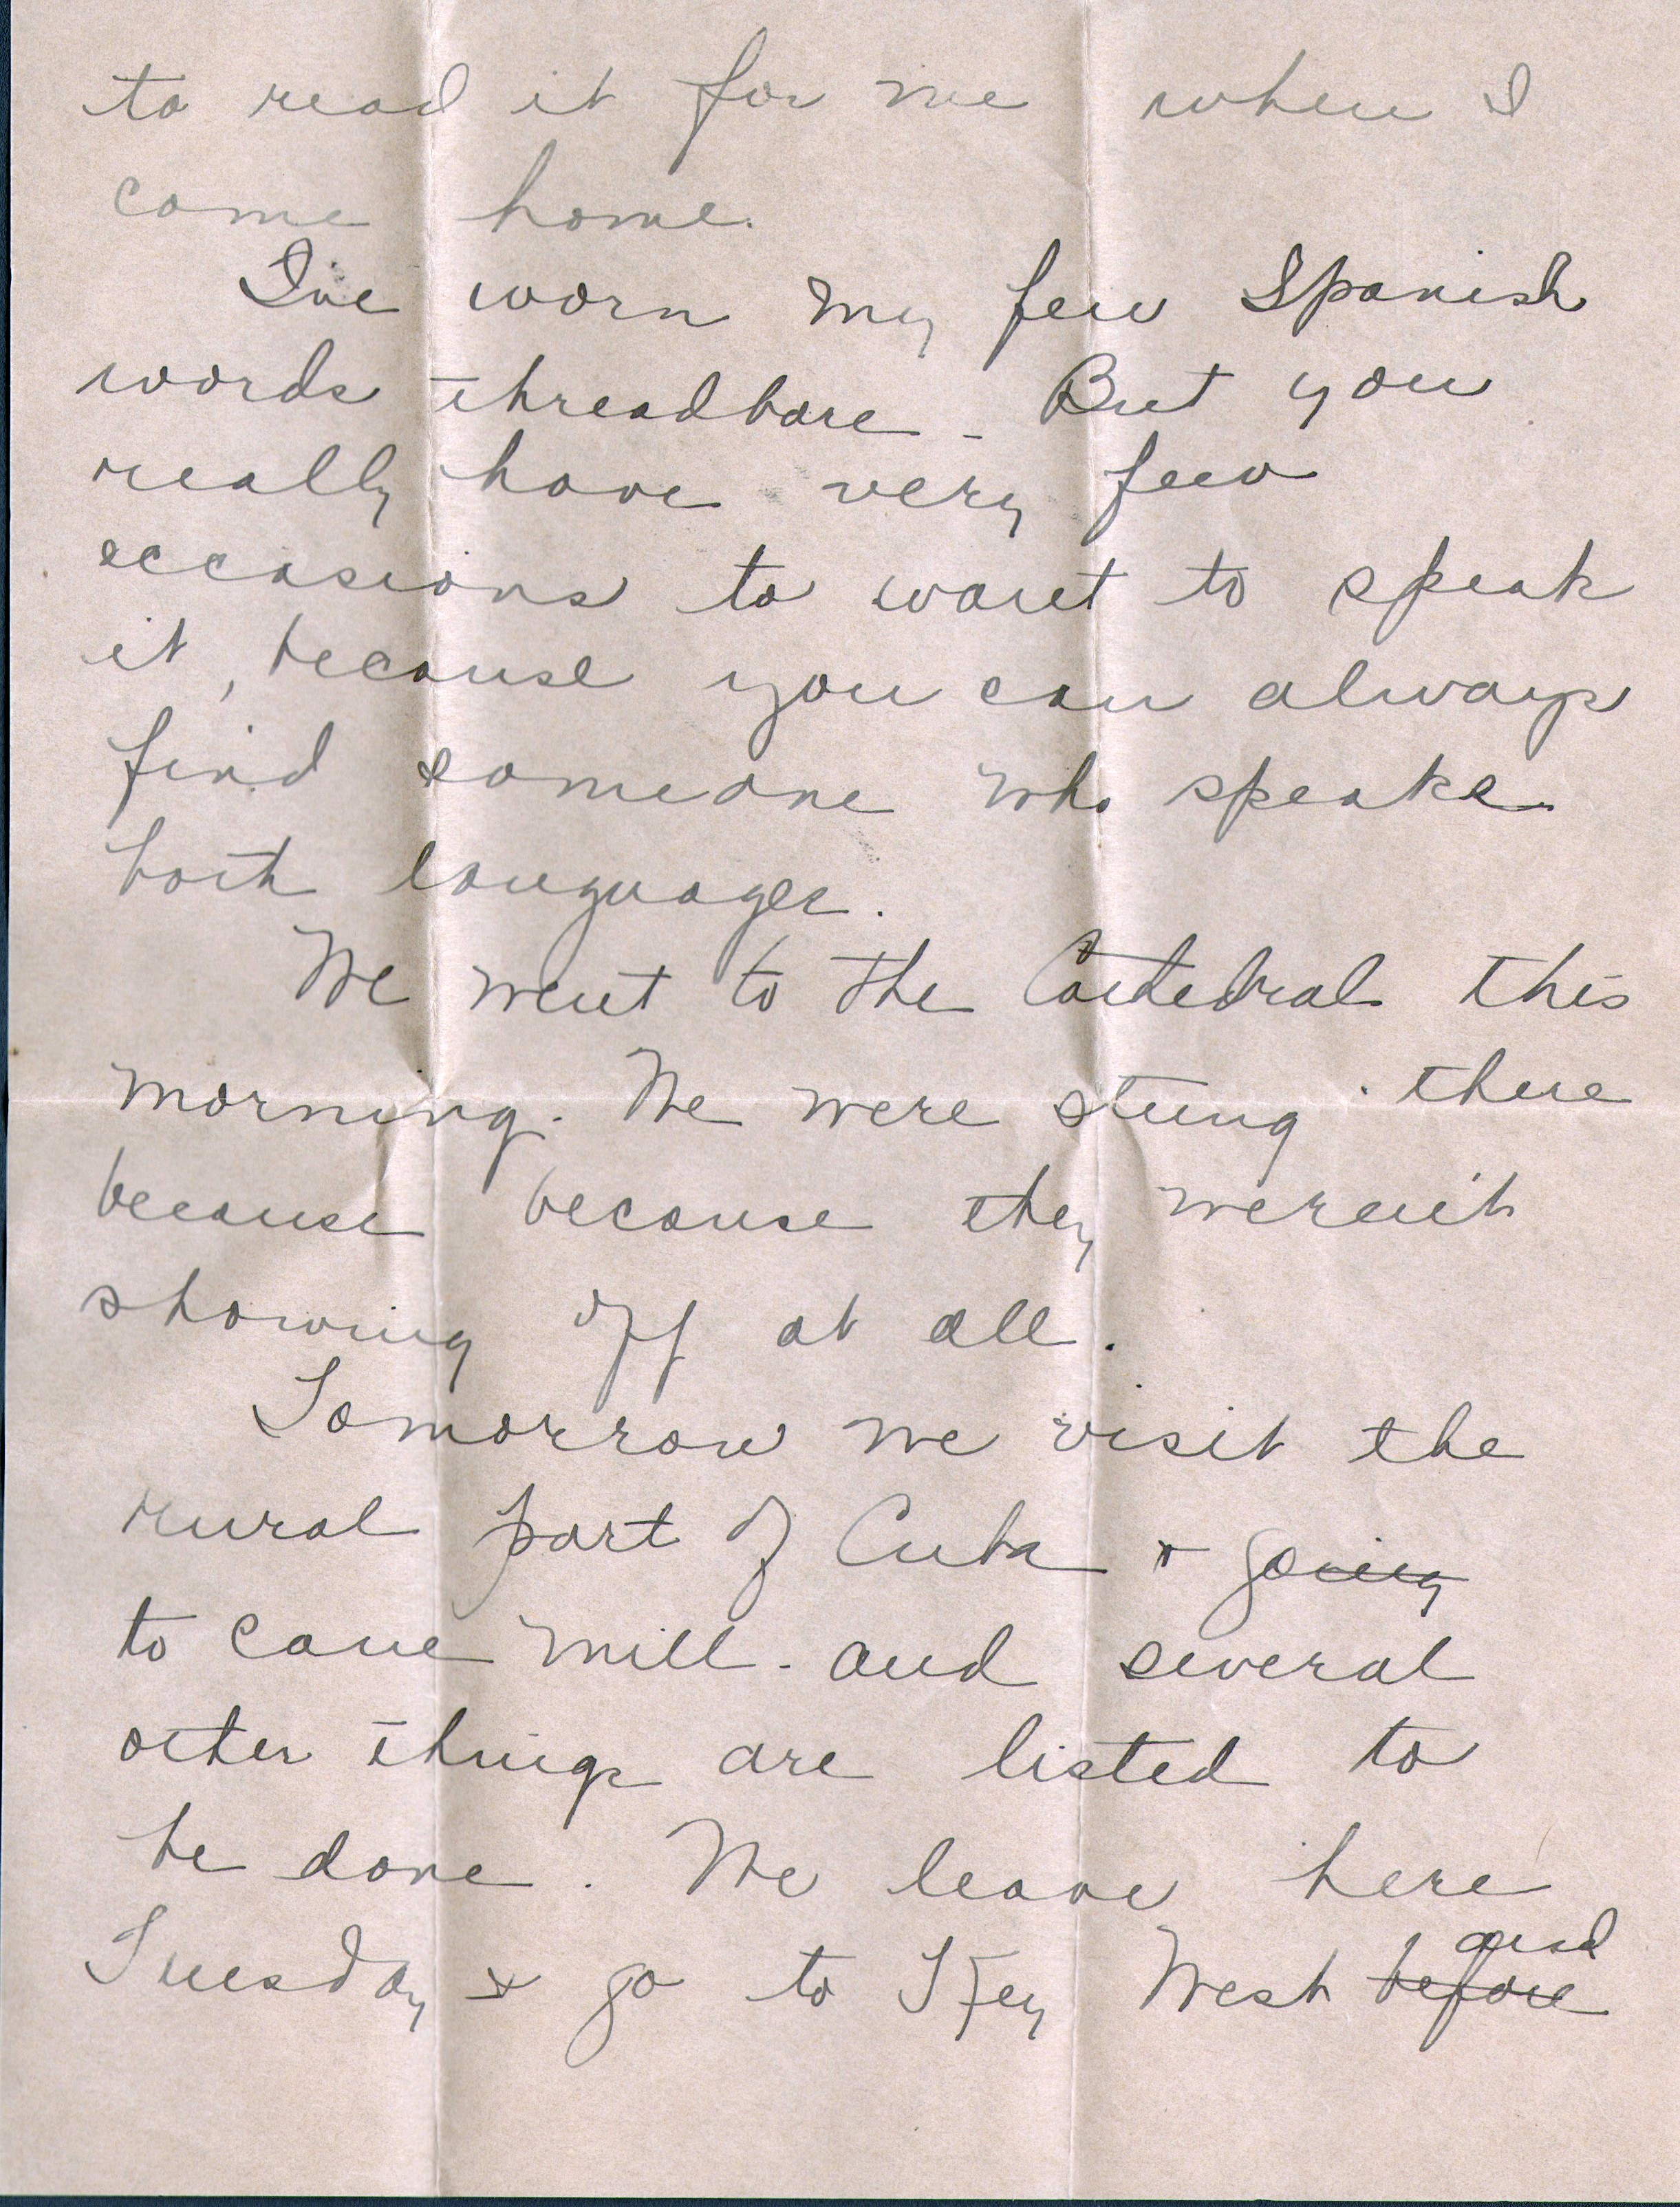 to read it for me when I
come home.
I've worn my few Spanish
words threadbare - But you
really have very few
occasions to want to speak
it, because you can always
find someone who speaks
both languages.
We went to the Catedral this
morning. We were stung there
because because they weren't
showing off at all.
Tomorrow we visit the
rural part of Cuba & going
to cane mill - and several
other things are listed to
be done. We leave here
Tuesday & go to Key West before and